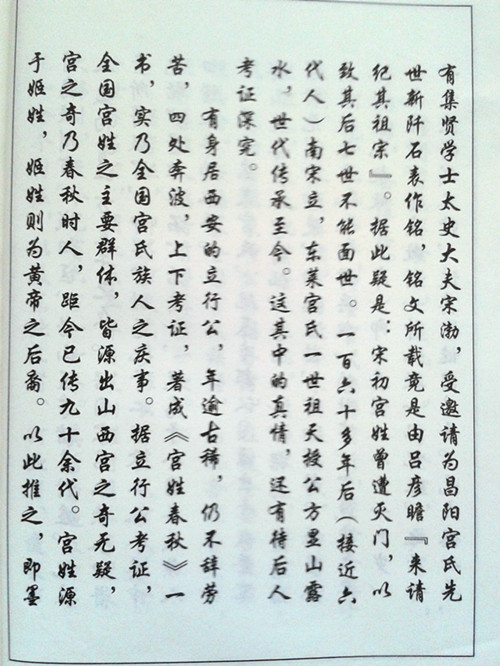 有集贤学士太史大夫宋渤，受邀请为昌阳宫氏先
世新阡石表作铭，铭文所载竟是由吕彦瞻『来请
纪其祖宗』。据此疑是：宋初宫姓曾遭灭门，以
致其后七世不能面世。一百六十多年后（接近六
代人）南宋立，东莱宫氏一世祖天授公方里山露
水，世代传承至今。这其中的真情，还有待后人
考证深究。
有身居西安的立行公，年逾古稀，仍不辞劳
苦，四处奔波，上下考证，著成《宫姓春秋》一
书，实乃全国宫氏族人之庆事。据立行公考证，
全国宫姓之主要群体，皆源出山西宫之奇无疑，
宫之奇乃春秋时人，距今已传九十余代。宫姓源
于姬姓，姬姓则为黄帝之后裔。以此推之，即墨